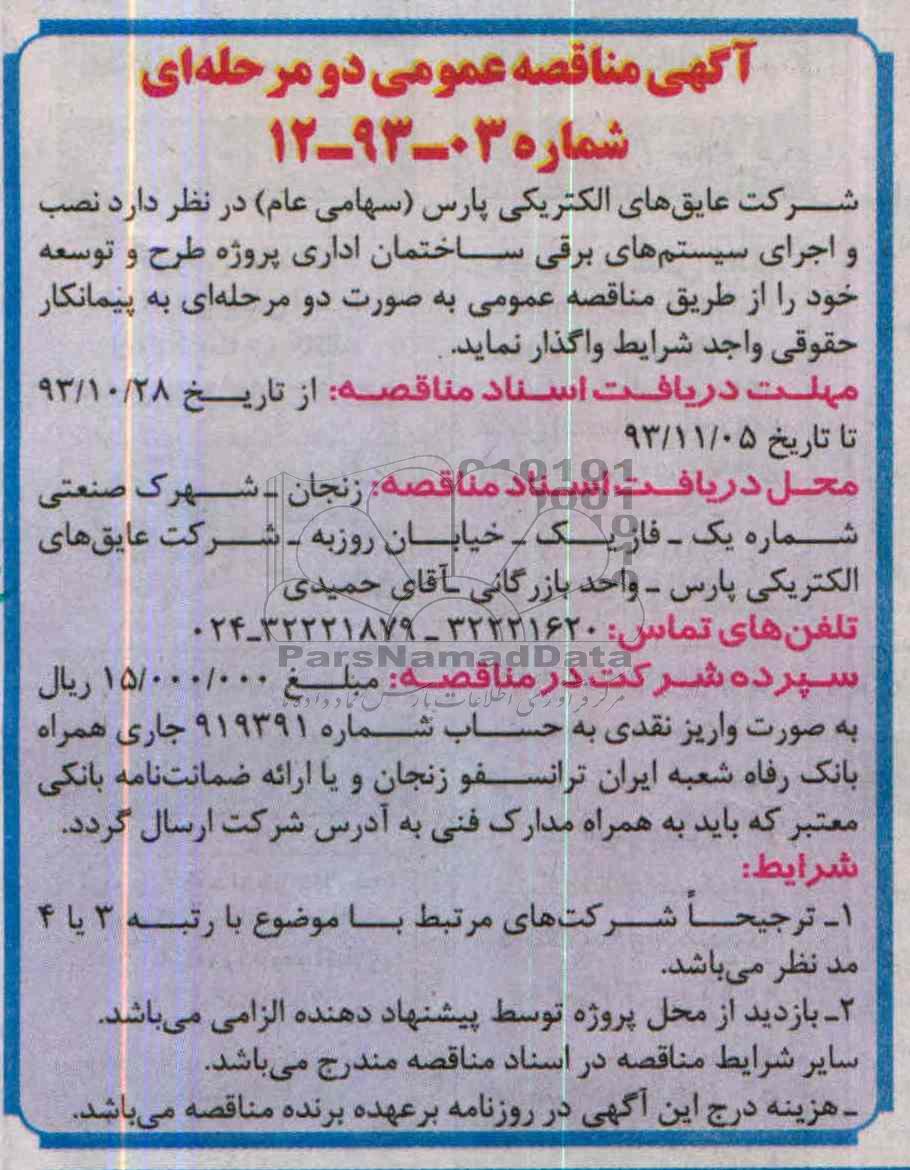 آگهی مناقصه عمومی دو مرحله‌ای
شماره ۰۳-۹۳-۱۲
شرکت عایق‌های الکتریکی پارس (سهامی عام) در نظر دارد نصب
و اجرای سیستم‌های برقی ساختمان اداری پروژه طرح و توسعه
خود را از طریق مناقصه عمومی به صورت دو مرحله‌ای به پیمانکار
حقوقی واجد شرایط واگذار نماید.
مهلت دریافت اسناد مناقصه: از تاریخ ۹۳/۱۰/۲۸
تا تاریخ ۹۳/۱۱/۰۵
محل دریافت اسناد مناقصه: زنجان - شهرک صنعتی
شماره یک - فاز یک - خیابان روزبه - شرکت عایق‌های
الکتریکی پارس - واحد بازرگانی - آقای حمیدی
تلفن‌های تماس: ۳۲۲۲۱۶۲۰ - ۳۲۲۲۱۸۷۹-۰۲۴
ParsNamadData
سپرده شرکت در مناقصه: مبلغ ۱۵/۰۰۰/۰۰۰ ریال
مرکز فرآوری اطلاعات پارس نماد داده‌ها
به صورت واریز نقدی به حساب شماره ۹۱۹۳۹۱ جاری همراه
بانک رفاه شعبه ایران ترانسفو زنجان و یا ارائه ضمانت‌نامه بانکی
معتبر که باید به همراه مدارک فنی به آدرس شرکت ارسال گردد.
شرایط:
۱- ترجیحاً شرکت‌های مرتبط با موضوع با رتبه ۳ یا ۴
مد نظر می‌باشد.
۲- بازدید از محل پروژه توسط پیشنهاد دهنده الزامی می‌باشد.
سایر شرایط مناقصه در اسناد مناقصه مندرج می‌باشد.
- هزینه درج این آگهی در روزنامه برعهده برنده مناقصه می‌باشد.